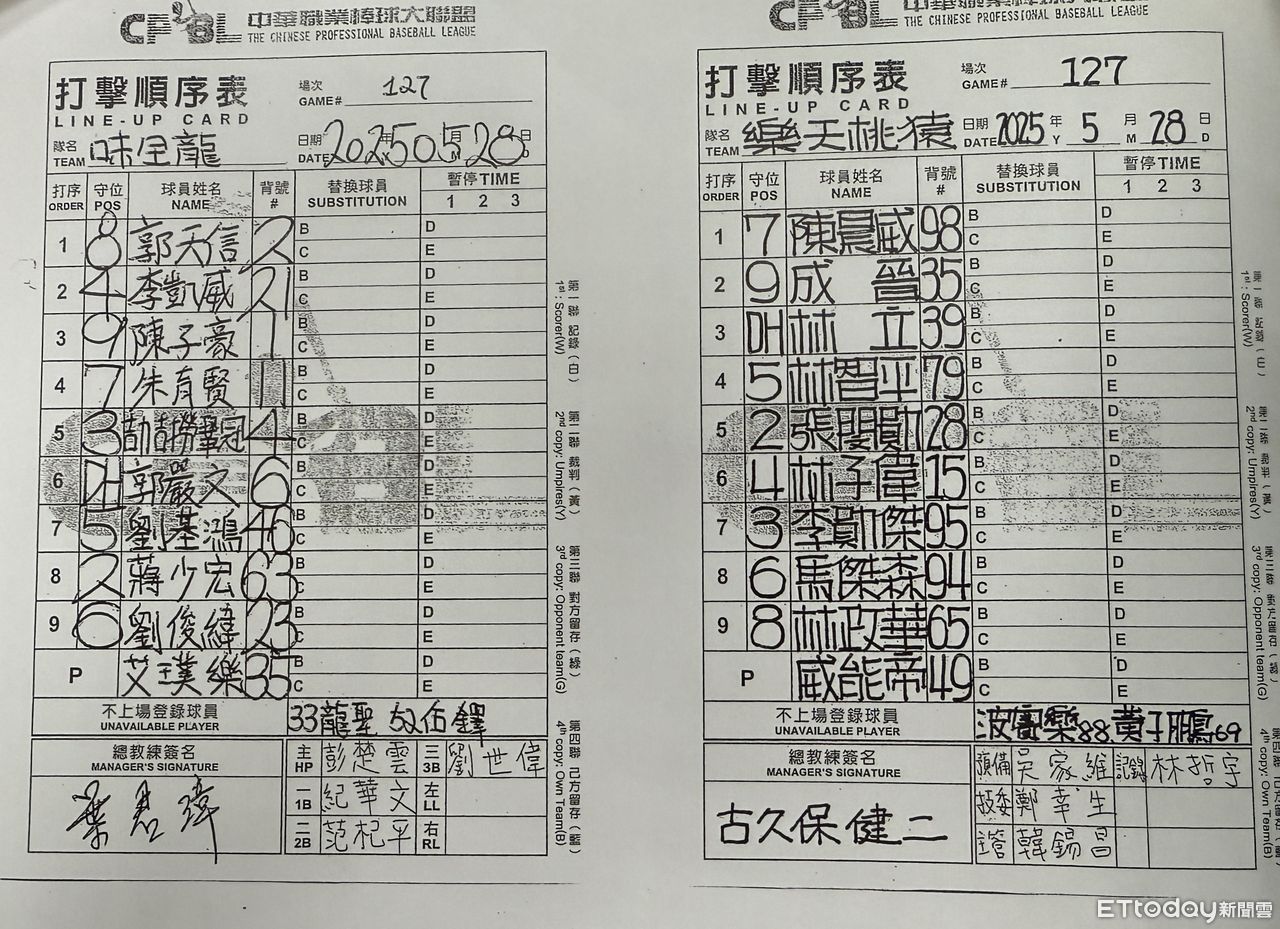 CPBL 中華職業棒球大聯盟
THE CHINESE PROFESSIONAL BASEBALL LEAGUE
打擊順序表
LINE-UP CARD
場次
GAME# 127
隊名
TEAM 味全龍
日期
DATE 2025 年 Y 05 月 M 28 日 D
打序 ORDER 守位 POS 球員姓名 NAME 背號 # 替換球員 SUBSTITUTION 暫停 TIME 1 2 3
1 8 郭天信 2 B C D E
2 4 李凱威 21 B C D E
3 9 陳子豪 1 B C D E
4 7 朱育賢 11 B C D E
5 3 吉力吉撈鞏冠 4 B C D E
6 郭嚴文 6 B C D E
7 5 劉基鴻 46 B C D E
8 2 蔣少宏 63 B C D E
9 6 劉俊緯 23 B C D E
P 艾璞樂 35 B C D E
不上場登錄球員
UNAVAILABLE PLAYER 33龍聖 52伍鐸
總教練簽名
MANAGER'S SIGNATURE
葉君璋
主 HP 彭楚雲 三 3B 劉世偉
一 1B 紀華文 左 LL
二 2B 范杞平 右 RL
第一聯 記錄(白)
1st : Scorer(W)
第二聯 裁判(黃)
2nd copy: Umpires(Y)
第三聯 對方留存(綠)
3rd copy: Opponent team(G)
第四聯 己方留存(藍)
4th copy: Own Team(B)
CPBL
THE CHINESE PROFESSIONAL BASEBALL LEAGUE
打擊順序表
LINE-UP CARD
場次
GAME# 127
隊名
TEAM 樂天桃猿
日期
DATE 2025 年 Y 5 月 M 28 日 D
打序 ORDER 守位 POS 球員姓名 NAME 背號 # 替換球員 SUBSTITUTION 暫停 TIME 1 2 3
1 7 陳晨威 98 B C D E
2 9 成晉 35 B C D E
3 DH 林立 39 B C D E
4 5 林智平 79 B C D E
5 2 張閔勛 28 B C D E
6 4 林子偉 15 B C D E
7 3 李勛傑 95 B C D E
8 6 馬傑森 94 B C D E
9 8 林政華 65 B C D E
P 威能帝 49 B C D E
不上場登錄球員
UNAVAILABLE PLAYER 波賽樂88. 黃子鵬69
總教練簽名
MANAGER'S SIGNATURE
古久保健二
預備 吳家維 記錄 林哲宇
技委 鄭幸生
韓錫昌
第一聯 記錄(白)
1st : Scorer(W)
第二聯 裁判(黃)
2nd copy: Umpires(Y)
第三聯 對方留存(綠)
3rd copy: Opponent team(G)
4th copy: Own Team(B)
ETtoday新聞雲